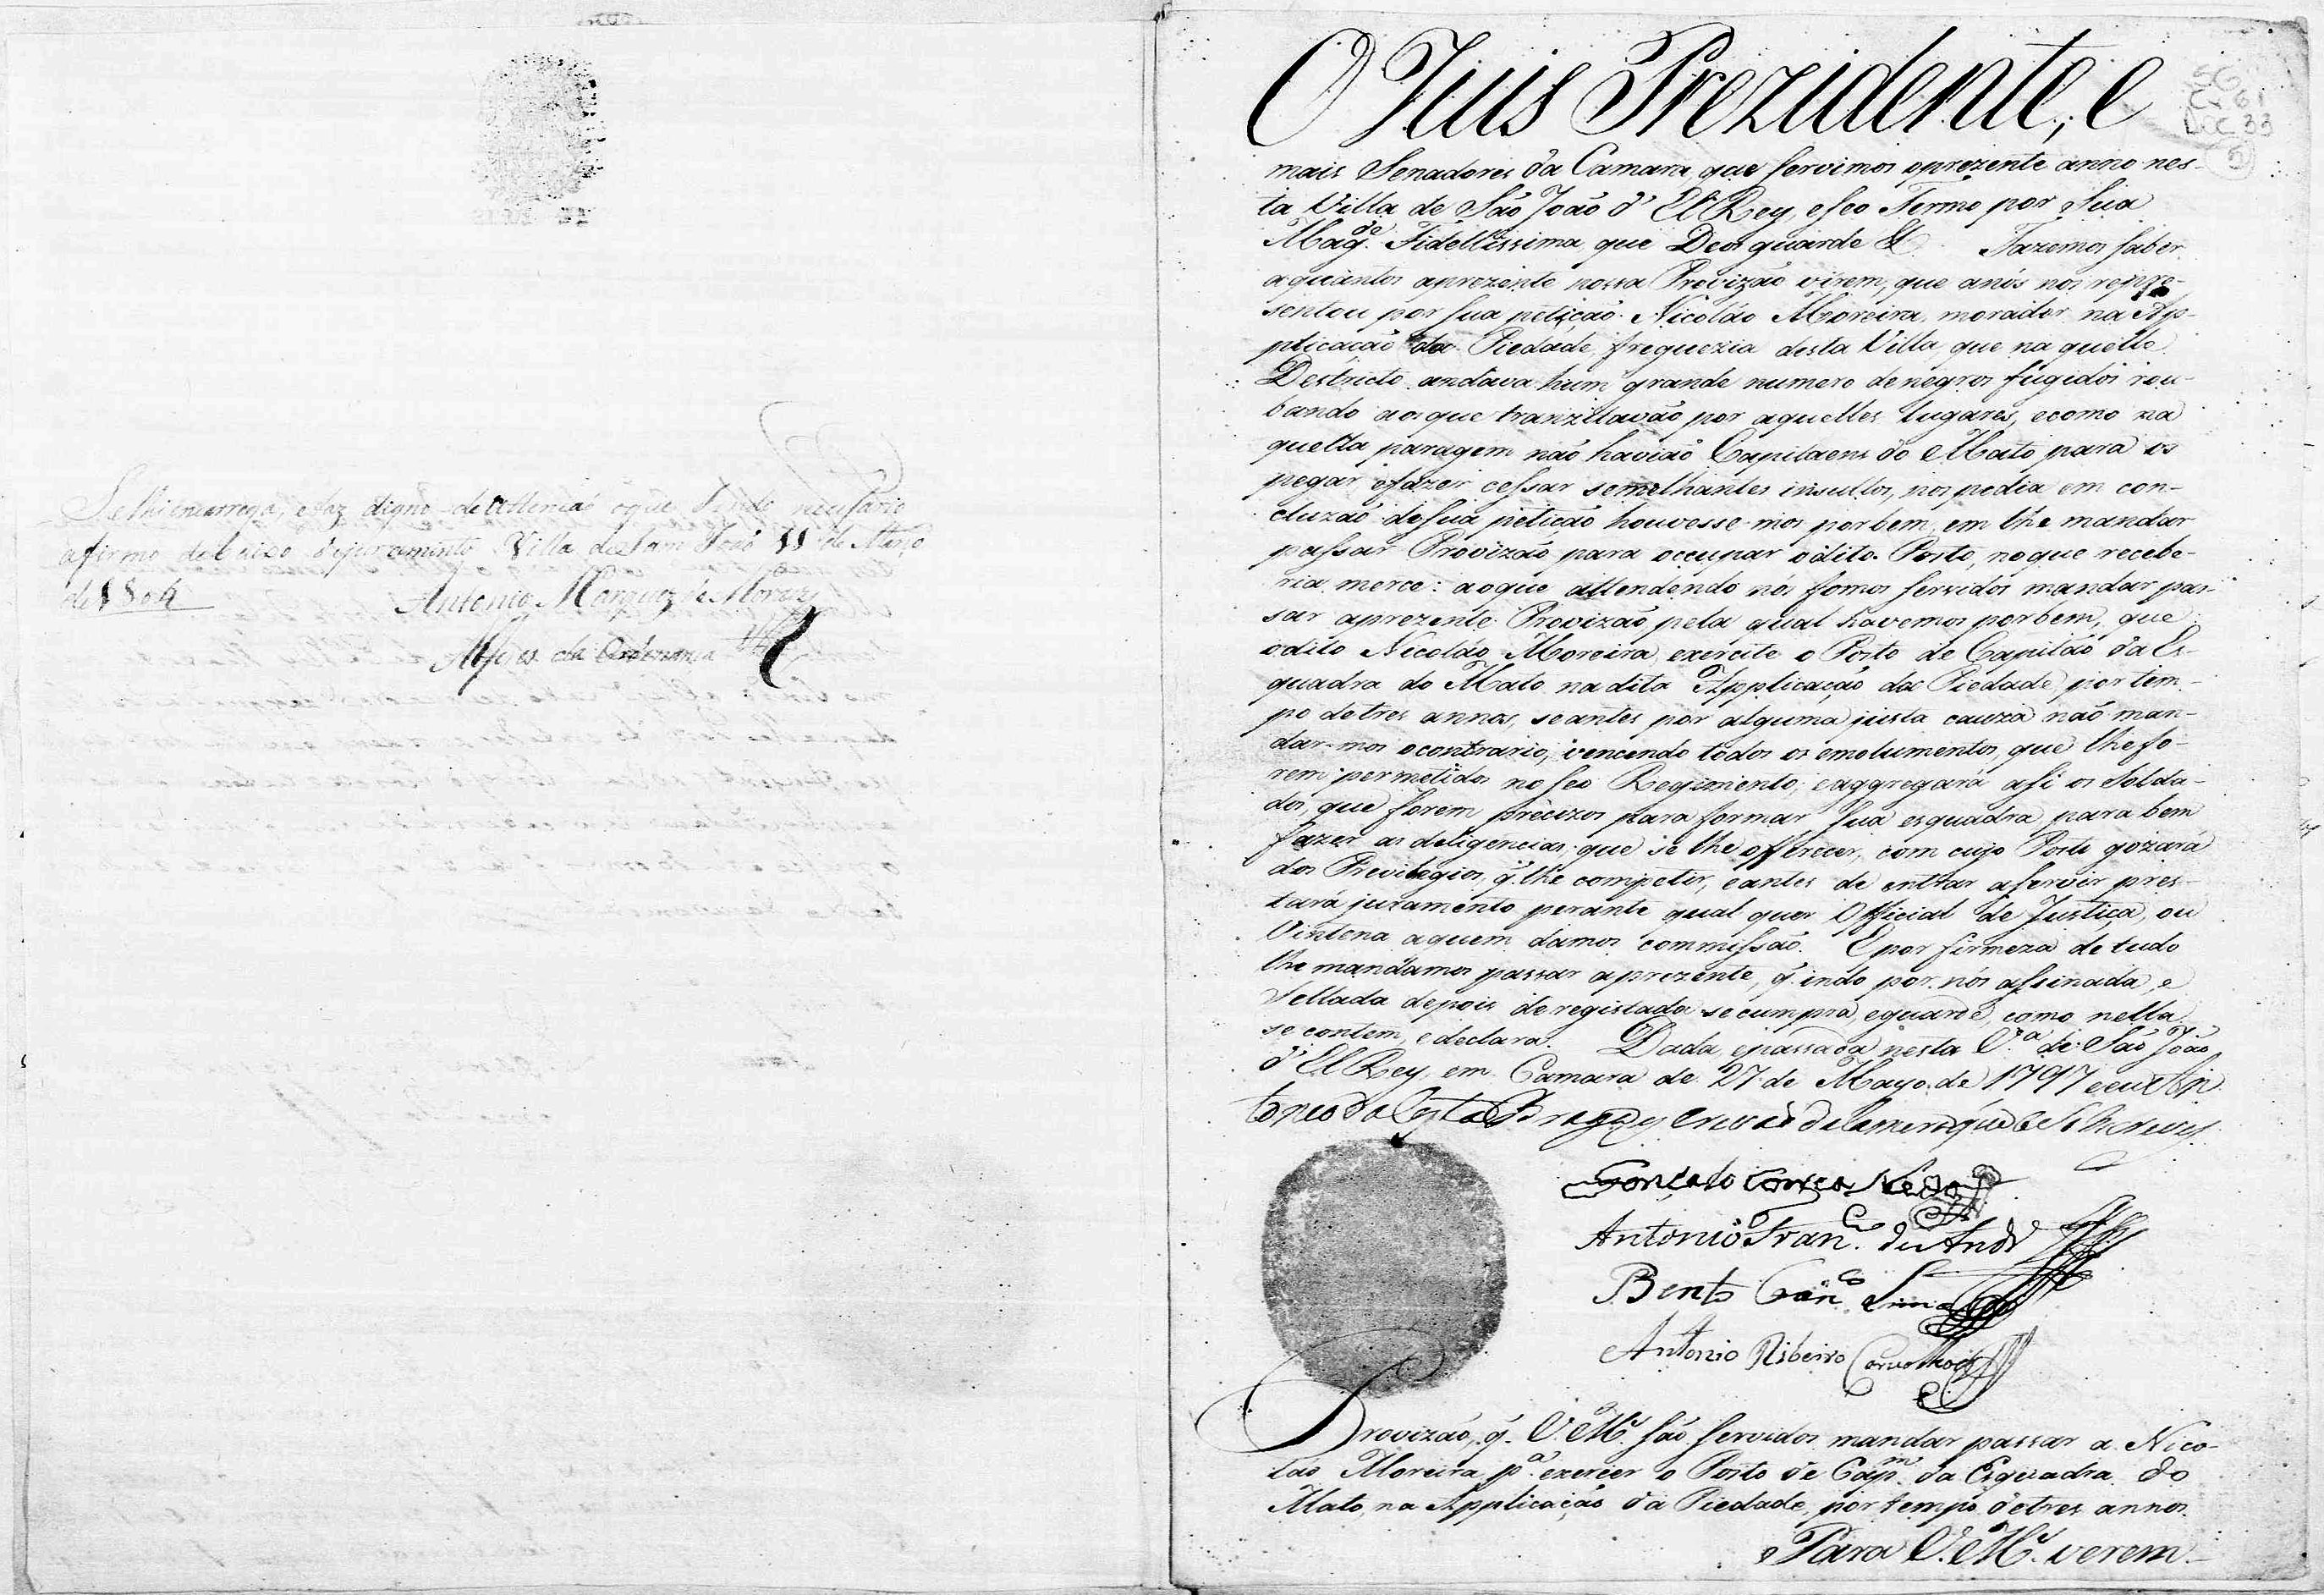 Se lhi encarrega, e faz digno de attencaõ o que
afirmo debaixo do juramento Villa de Sam Joaõ 11 de Março
de 1804
Antonio Marques de Moraes
Alferes da Ordenança
O Juis Prezidente, e
SG
Cx 61
Doc 33
mais Senadores da Camara, que servimos o prezente anno nes-
ta Villa de Saõ Joaõ d'El Rey, e seo Termo por Sua
Mag.de Fidellissima, que Deos guarde &. Fazemos saber
a quantos a prezente nossa Provizaõ virem, que a nós nos repre-
sentou por sua petiçaõ Nicoláo Moreira, morador na Ap-
plicacaõ da Piedade, freguezia desta Villa, que na quelle
Destricto andava hum grande numero de negros fugidos rou-
bando aos que tranzitavaõ por aquelles lugares, e como na
quella paragem naõ haviaõ Capitaens do Mato para os
pegar e fazer cessar semelhantes insultos, nos pedia em con-
cluzaõ de sua petiçaõ houvesse-mos por bem, em lhe mandar
passar Provizaõ para occupar o dito Posto, no que recebe-
ria merce: ao que attendendo nós fomos servidos mandar pas-
sar a prezente Provizaõ pela qual havemos por bem, que
o dito Nicoláo Moreira, exercite o Posto de Capitaõ da Es-
quadra do Mato na dita Applicaçaõ da Piedade, por tem-
po de tres annos, se antes por alguma justa cauza naõ man-
dar-mos o contrario; vencendo todos os emolumentos, que lhe fo-
rem permetidos no seo Regimento; e aggregará asi os Solda-
dos, que forem precizos para formar sua esquadra, para bem
fazer as deligencias, que se lhe offerecer, com cujo Posto gozará
dos Previlegios, q. lhe competir, e antes de entrar a servir pres-
tará juramento perante qual quer Official de Justiça, ou
Vintena a quem damos commissaõ. E por firmeza de tudo
lhe mandamos passar a prezente, q. indo por nós assinada, e
Sellada depois de registada se cumpra, e guarde, como nella
se contem, e declara. Dada, e passada nesta V.a de Saõ Joaõ
d'El Rey, em Camara de 27 de Mayo de 1797 e eu An
tonio da Costa Braga escrivaõ da Camera que o Sobescrevy
Gonçalo Correa
Antonio Fran.co de And.e
Bento Lima
Antonio Ribeiro Carvalho
Provizaõ, q. V. M.es saõ servidos mandar passar a Nico-
lao Moreira p.a exercer o Posto de Cap.m da Esquadra do
Mato, na Applicaçaõ da Piedade, por tempo de tres annos.
Para V. M.es verem.